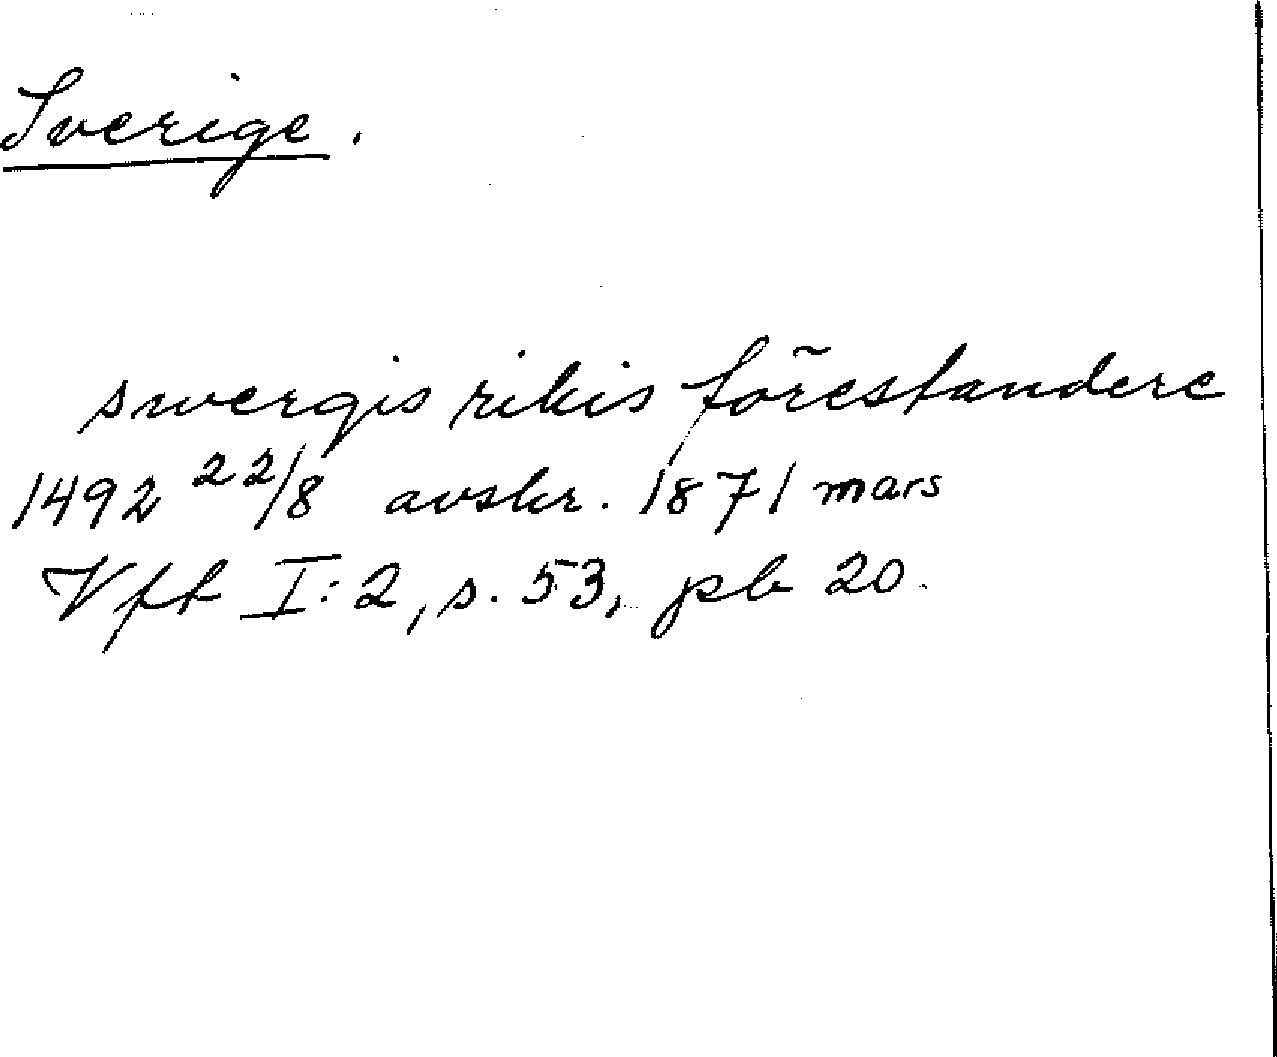 Sverige.
swergis rikis förestandere
1492 22/8 avskr. 1871 mars
Vft I:2, s. 53, pb 20.